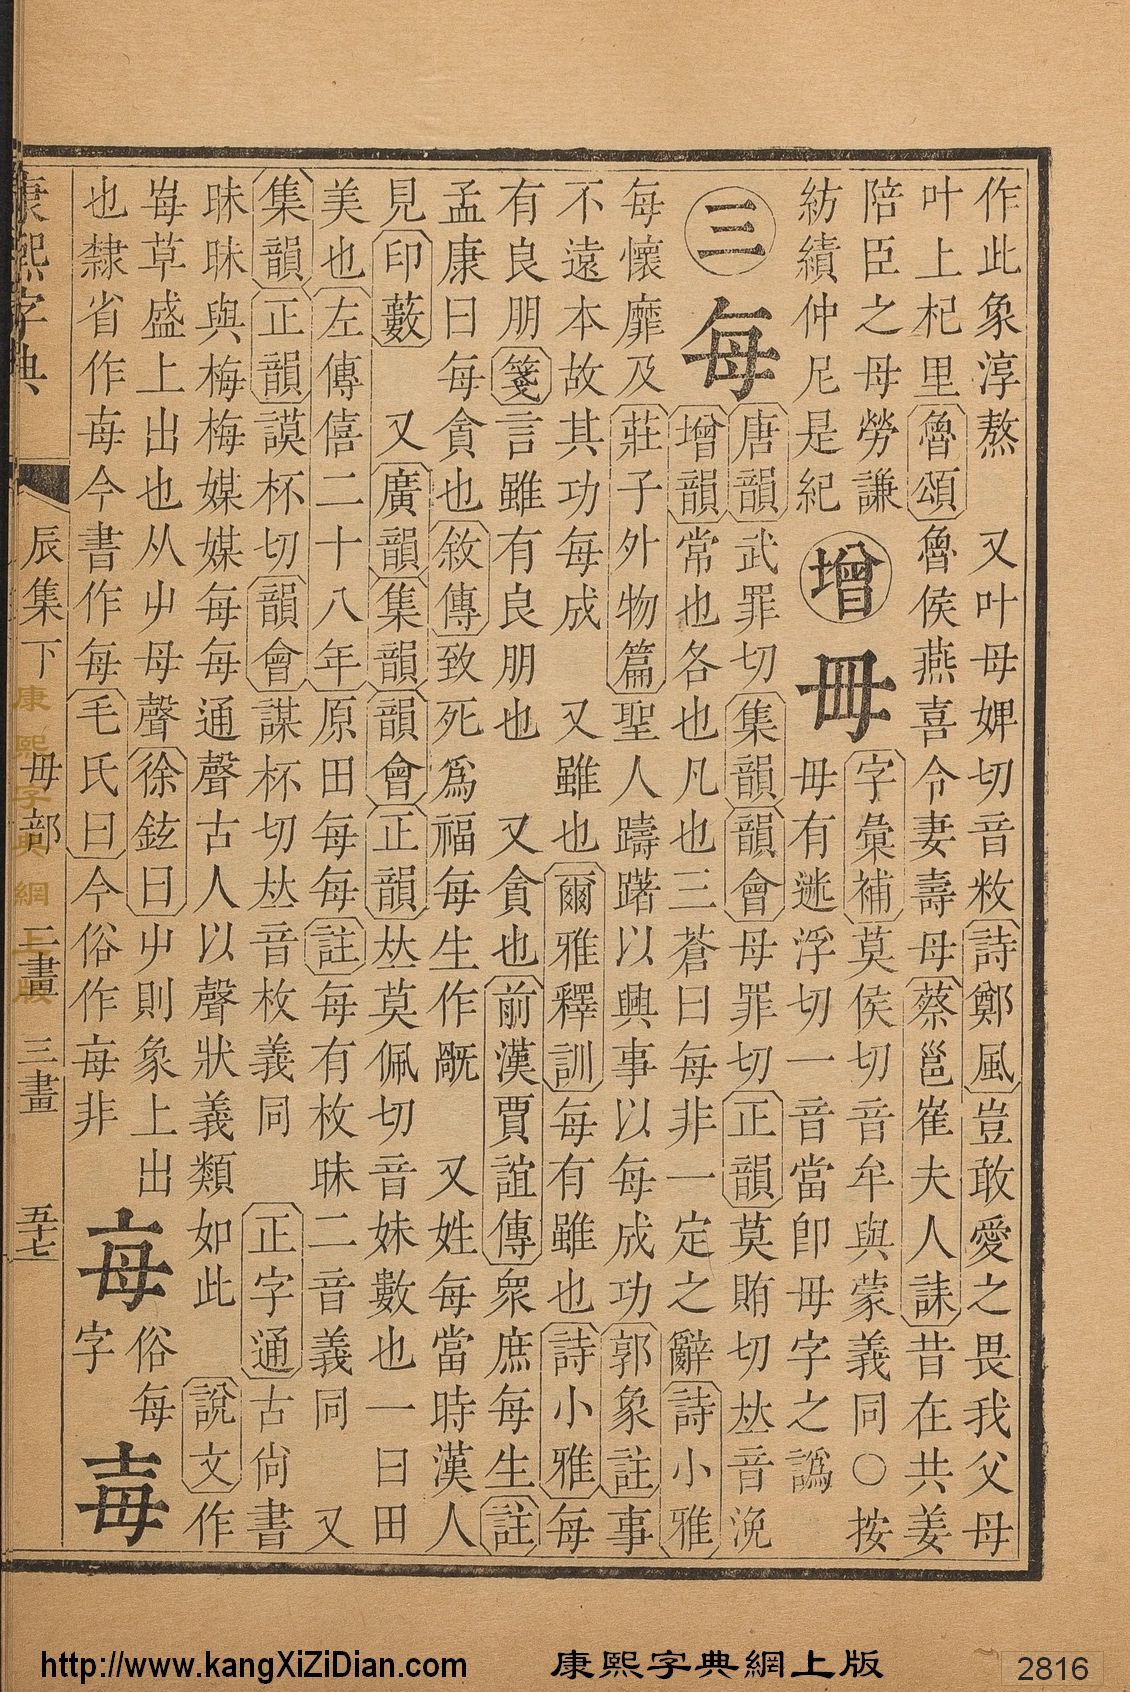 作此象淳熬　又叶母婢切音敉詩鄭風豈敢愛之畏我父母
叶上杞里魯頌魯侯燕喜令妻壽母蔡邕崔夫人誄昔在共姜
陪臣之母勞謙
紡績仲尼是紀
增
毌
字彙補莫侯切音牟與蒙義同○按
毋有逃浮切一音當卽毋字之譌
三
每
唐韻武罪切集韻韻會母罪切正韻莫賄切𠀤音浼
增韻常也各也凡也三蒼曰每非一定之辭詩小雅
每懷靡及莊子外物篇聖人躊躇以興事以每成功郭象註事
不遠本故其功每成　又雖也爾雅釋訓每有雖也詩小雅每
有良朋箋言雖有良朋也　又貪也前漢賈誼傳衆庶每生註
孟康曰每貪也敘傳致死爲福每生作厰　又姓每當時漢人
見印藪　又廣韻集韻韻會正韻𠀤莫佩切音妹數也一曰田
美也左傳僖二十八年原田每每註每有枚昧二音義同　又
集韻正韻謨杯切韻會謀杯切𠀤音枚義同　正字通古尙書
昧昧與梅梅媒媒每每通聲古人以聲狀義類如此　說文作
𡴕草盛上出也从屮母聲徐鉉曰屮則象上出
也隸省作𣫭今書作每毛氏曰今俗作𣫭非
𣫭
俗每
字
毐
康熙字典
辰集下　毋部　二畫　三畫　五十七
康熙字典網上版
http://www.kangXiZiDian.com　康熙字典網上版　2816